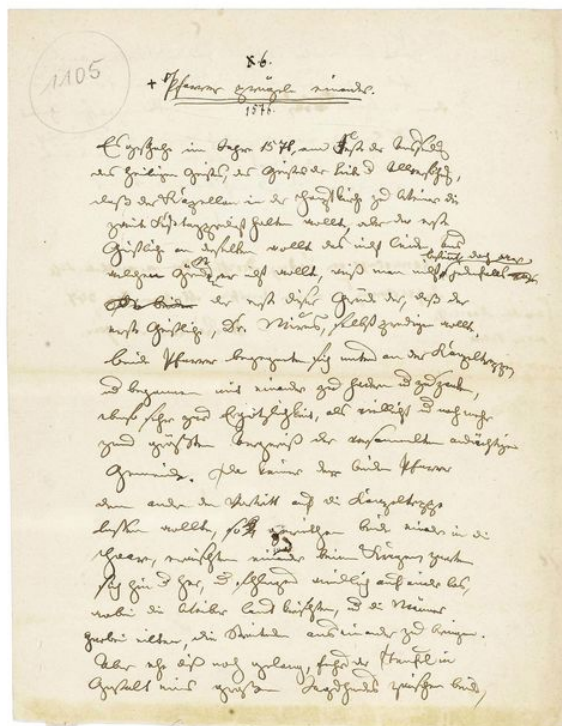 1105
X 6.
+ Pfarrer prügeln einander.
1576.
Es geschah im Jahre 1576, am Fest der
des heiligen Geistes, des Geistes der Liebe &
daß der Kaplan in der Hauptkirche zu Weimar die
zweite Festtagspredigt halten wollte, aber der erste
Geistliche an derselben wollte das nicht leiden, aus
welchem Grund er es nicht wollte, weiß man nicht, jedenfalls
der erste dieser Gründe der, daß der
erste Geistliche, Dr. Mirus, selbst predigen wollte.
Beide Pfarrer begegneten sich unten an der Kanzeltreppe
und begannen mit einander zu hadern & zu zanken,
ebenso sehr zur Ergötzlichkeit, als vielleicht & noch mehr
zum größten Ärgerniß der versammelten andächtigen
Gemeinde. Da keiner der beiden Pfarrer
dem andern den Vortritt auf die Kanzeltreppe
lassen wollte, so geriethen beide einander in die
Haare, erwischten einander beim Kragen, zerrten
sich hin & her, & schlugen endlich auf einander los,
wobei die Weiber laut kreischten, & die Männer
herbei eilten, die Streitenden auseinander zu bringen.
Aber ehe dieß noch gelang, fuhr der Teufel in
Gestalt eines großen Jagdhunds zwischen beide,